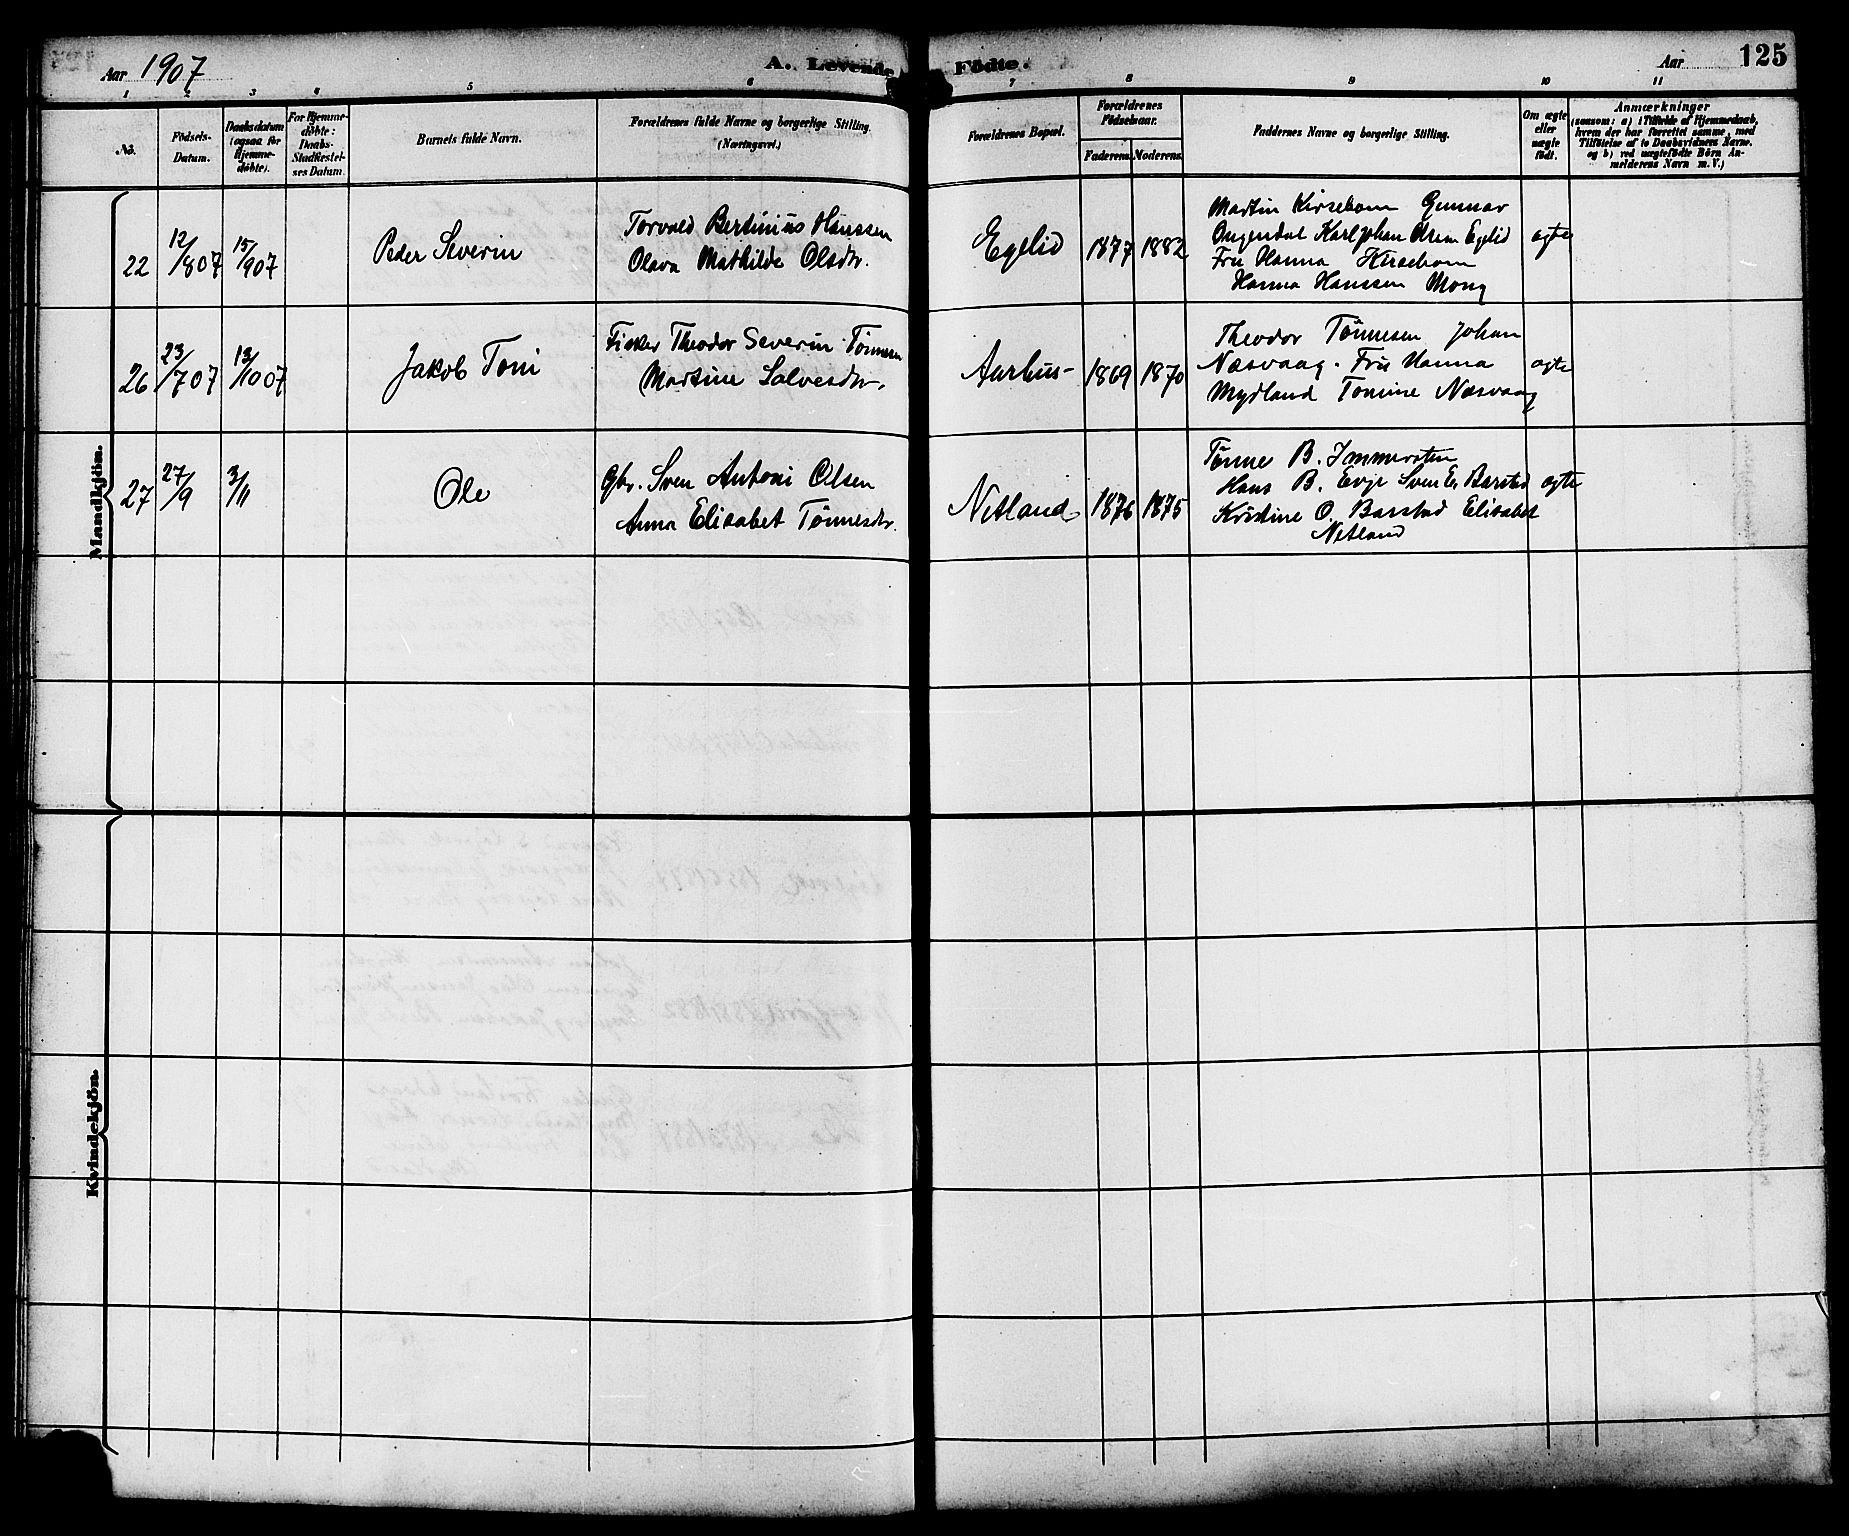 Aar 1907 A. Levende Födte. Aar 125
1 2 3 4 5 6 7 8 9 10 11
No. Födsels-Datum. Daabsdatum (ogsaa for Hjemme-döbte). For Hjemme-döbte: Daabs-Stadfæstel-ses Datum. Barnets fulde Navn. Forældrenes fulde Navne og borgerlige Stilling. (Næringsvei.) Forældrenes Bopæl. Forældrenes Födselsaar. Faderens. Moderens. Faddernes Navne og borgerlige Stilling. Om ægte eller uægte födt. Anmærkninger (saasom: a) i Tilfælde af Hjemmedaab, hvem der har forrettet samme, med Tilföielse af to Daabsvidners Navne. og b) ved uægtefödte Börn An-melderens Navn m. V.)
Mandkjön.
22 12/807 15/907 Peder Severin Torvald Bertinius Hanssen
Olava Mathilde Olsdtr. Egelid 1877 1882 Martin Kirsebom Gunnar
Angendal Karl Johan Olsen Egelid ægte
Fru Hanna Kirsebom
Hanna Hanssen Mong
26 23/707 13/1007 Jakob Toni Fisker Theodor Severin Tönnesen
Martine Salvesdtr. Aarhus- 1869 1870 Theodor Tönnesen Johan
Næsvaag. Fru Hanna ægte
Mydland Tomine Næsvaag
27 27/9 3/11 Ole Gbr. Sven Antoni Olsen
Anna Elisabet Tönnesdtr. Netland 1876 1875 Tönne B. Immersten
Hans B. Evje Sven E. Barstad ægte
Kristine O. Barstad Elisabet
Netland
Kvindekjön.